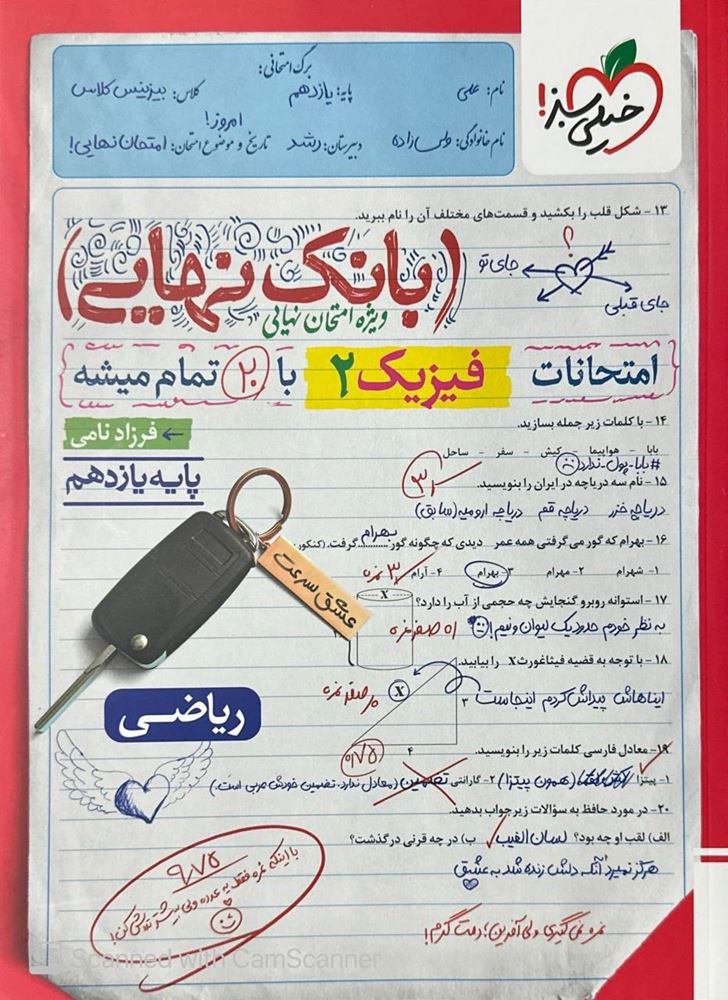 خیلی سبز!
برگ امتحانی:
نام: علی
پایه: یازدهم
کلاس: بیزینس کلاس
نام خانوادگی: ولی زاده
دبیرستان: رشد
تاریخ و موضوع امتحان: امروز! امتحان نهایی!
۱۳ – شکل قلب را بکشید و قسمت‌های مختلف آن را نام ببرید.
؟
جای تو
جای قبلی
(بانک نهایی)
ویژه امتحان نهایی
{امتحانات فیزیک ۲ با ۲۰ تمام میشه}
۱۴ – با کلمات زیر جمله بسازید.
← فرزاد نامی
بابا – هواپیما – کیش – سفر – ساحل
#بابا-پول-ندارد
پایه یازدهم
۱۵ – نام سه دریاچه در ایران را بنویسید.
دریاچه خزر دریاچه قم دریاچه ارومیه (سابق)
۱۶ – بهرام که گور می‌گرفتی همه عمر دیدی که چگونه گور ...بهرام... گرفت. (کنکور
۱- شهرام ۲- مهرام ۳- بهرام ۴- آرام
۳ نمره
عشق سرعت
X
۱۷ – استوانه روبرو گنجایش چه حجمی از آب را دارد؟
به نظر خودم حدود یک لیوان و نیم!
۱۸ – با توجه به قضیه فیثاغورث X را بیابید.
ایناهاش پیداش کردم اینجاست
X
۳
۴
ریاضی
۰/۷۵
۱۹ – معادل فارسی کلمات زیر را بنویسید.
۱- پیتزا (همون پیتزا) ۲- گارانتی تضمین (معادل ندارد. تضمین خودش عربی است.)
۲۰ – در مورد حافظ به سؤالات زیر جواب بدهید.
الف) لقب او چه بود؟ لسان الغیب ب) در چه قرنی درگذشت؟
هرگز نمیرد آنکه دلش زنده شد به عشق
۹/۷۵
با اینکه نمره فقط یه عدده ولی بیشتر تلاش کن!
نمره نمی‌گیری ولی آفرین؛ دمت گرم!
Scanned with CamScanner